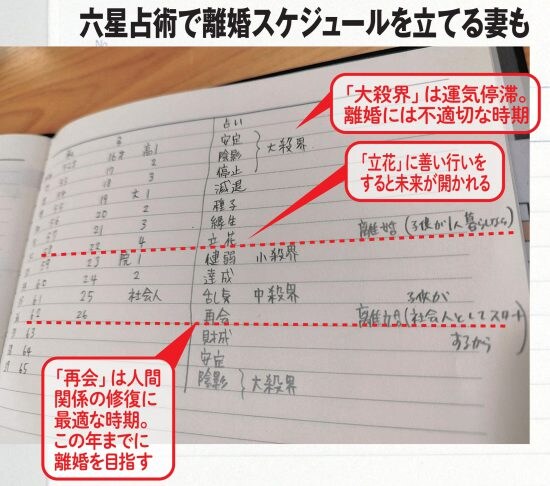 六星占術で離婚スケジュールを立てる妻も
「大殺界」は運気停滞。
離婚には不適切な時期
「立花」に善い行いを
すると未来が開かれる
占い
16才 高1 安定
17 2 陰影 大殺界
18 3 停止
19 大1 減退
20 2 種子
21 3 緑生
22 4 立花 離婚(子供が1人暮らしなら)
59 23 院1 健弱 小殺界
60 24 2 達成
61 25 社会人 乱気 中殺界 子供が
62 26 再会 離婚(社会人としてスタート
63 財成 するから)
64 安定
65 陰影 大殺界
「再会」は人間
関係の修復に
最適な時期。
この年までに
離婚を目指す